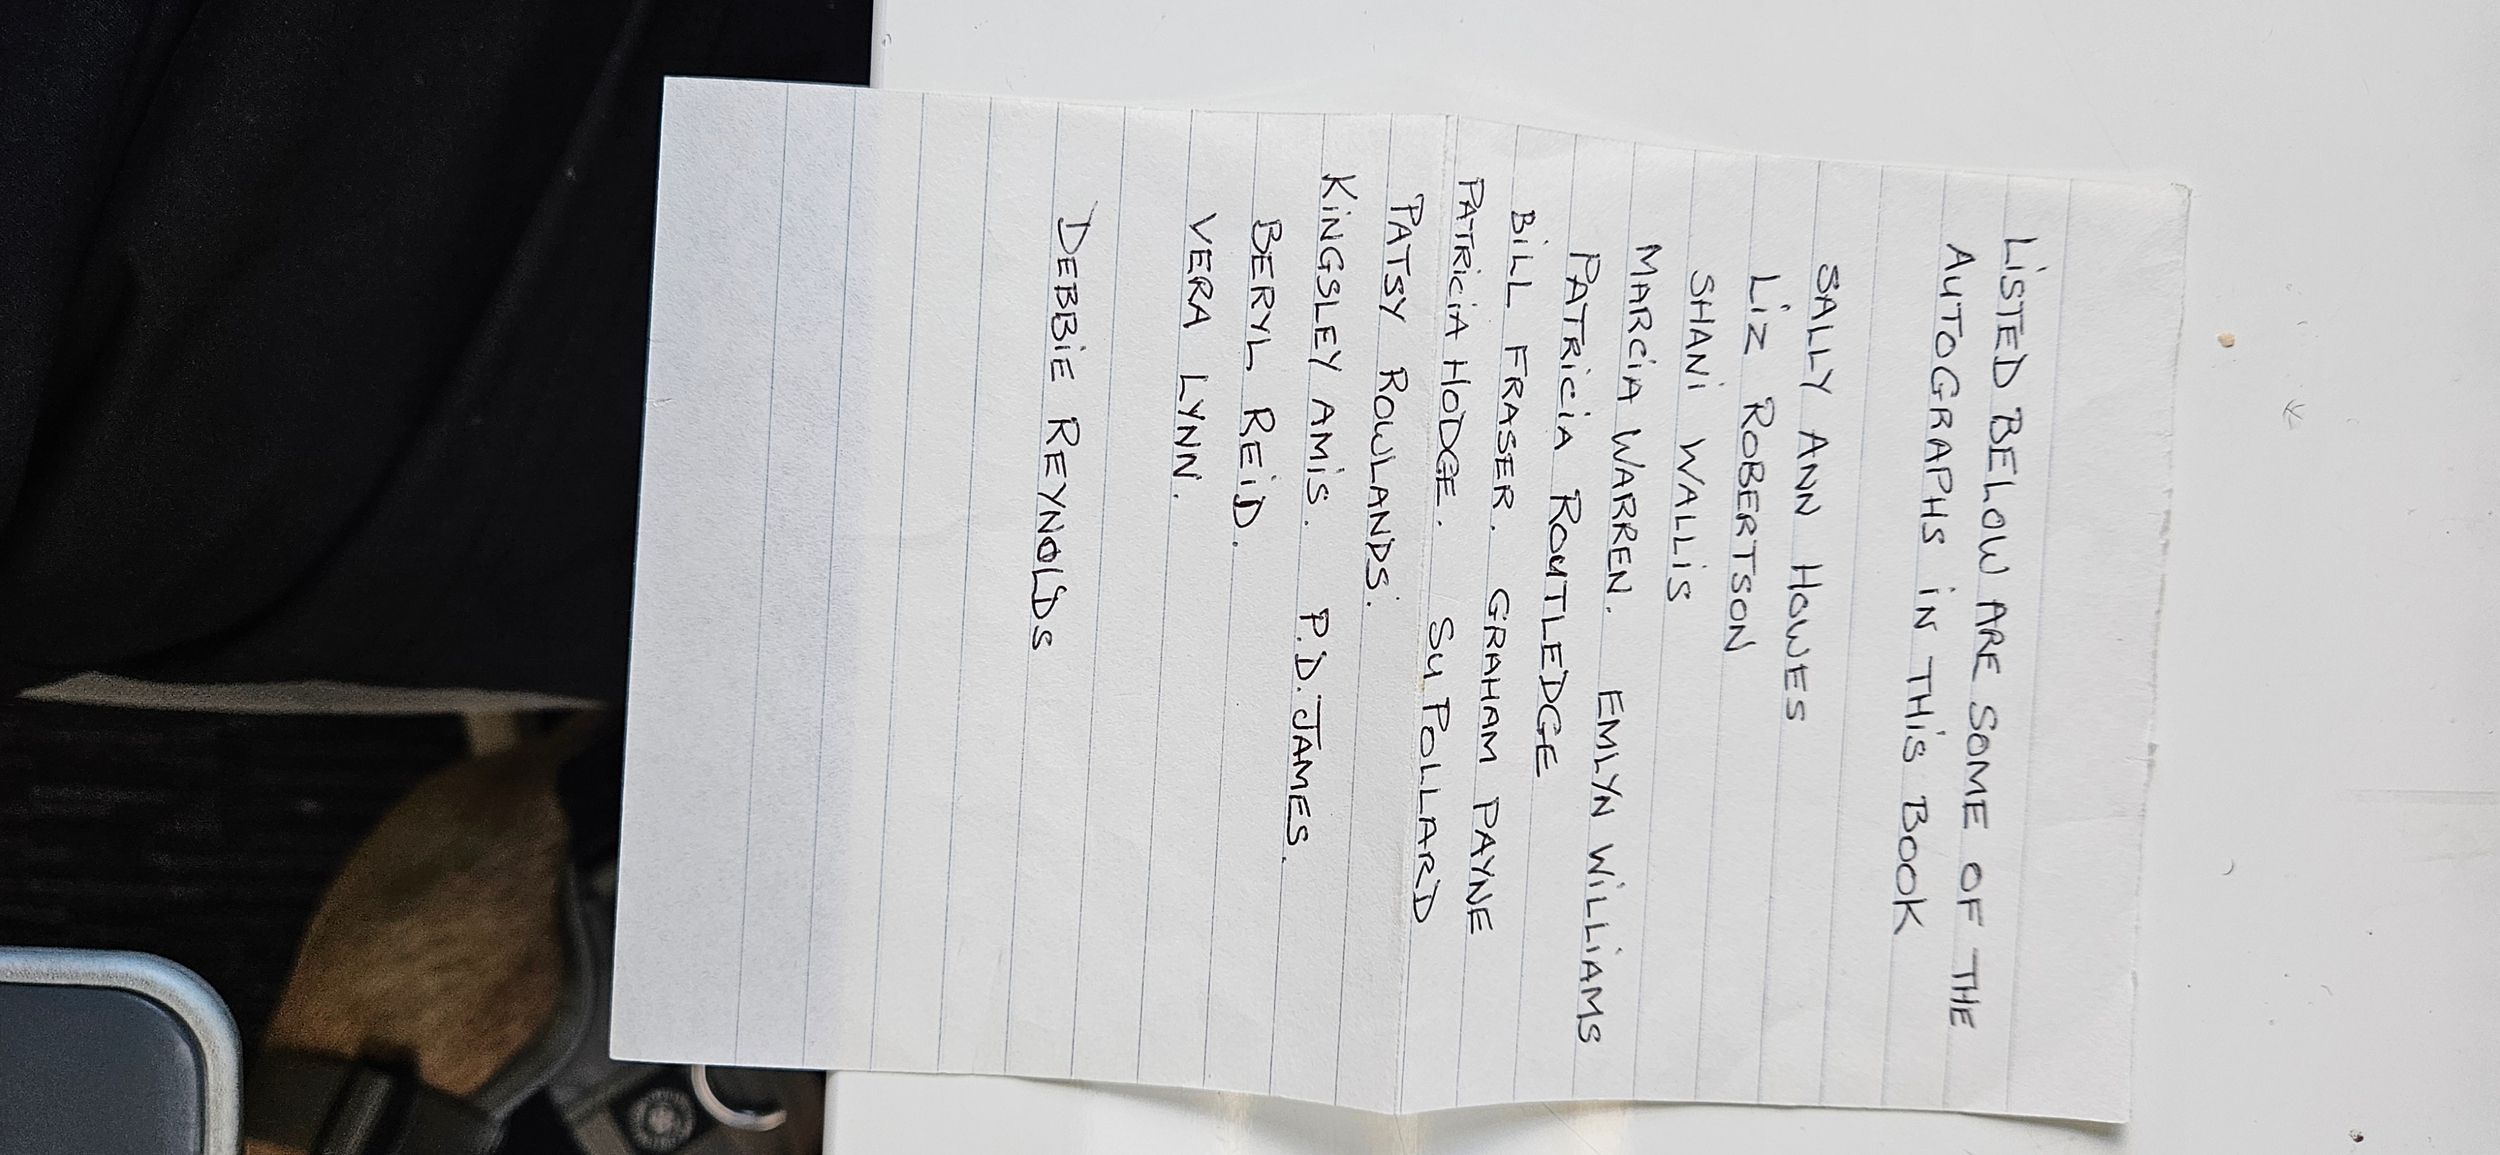 LISTED BELOW ARE SOME OF THE
AUTOGRAPHS IN THIS BOOK
SALLY ANN HOWES
LIZ ROBERTSON
SHANI WALLIS
MARCIA WARREN. EMLYN WILLIAMS
PATRICIA ROUTLEDGE
BILL FRASER. GRAHAM PAYNE
PATRICIA HODGE. SU POLLARD
PATSY ROWLANDS.
KINGSLEY AMIS. P.D. JAMES.
BERYL REID.
VERA LYNN.
DEBBIE REYNOLDS